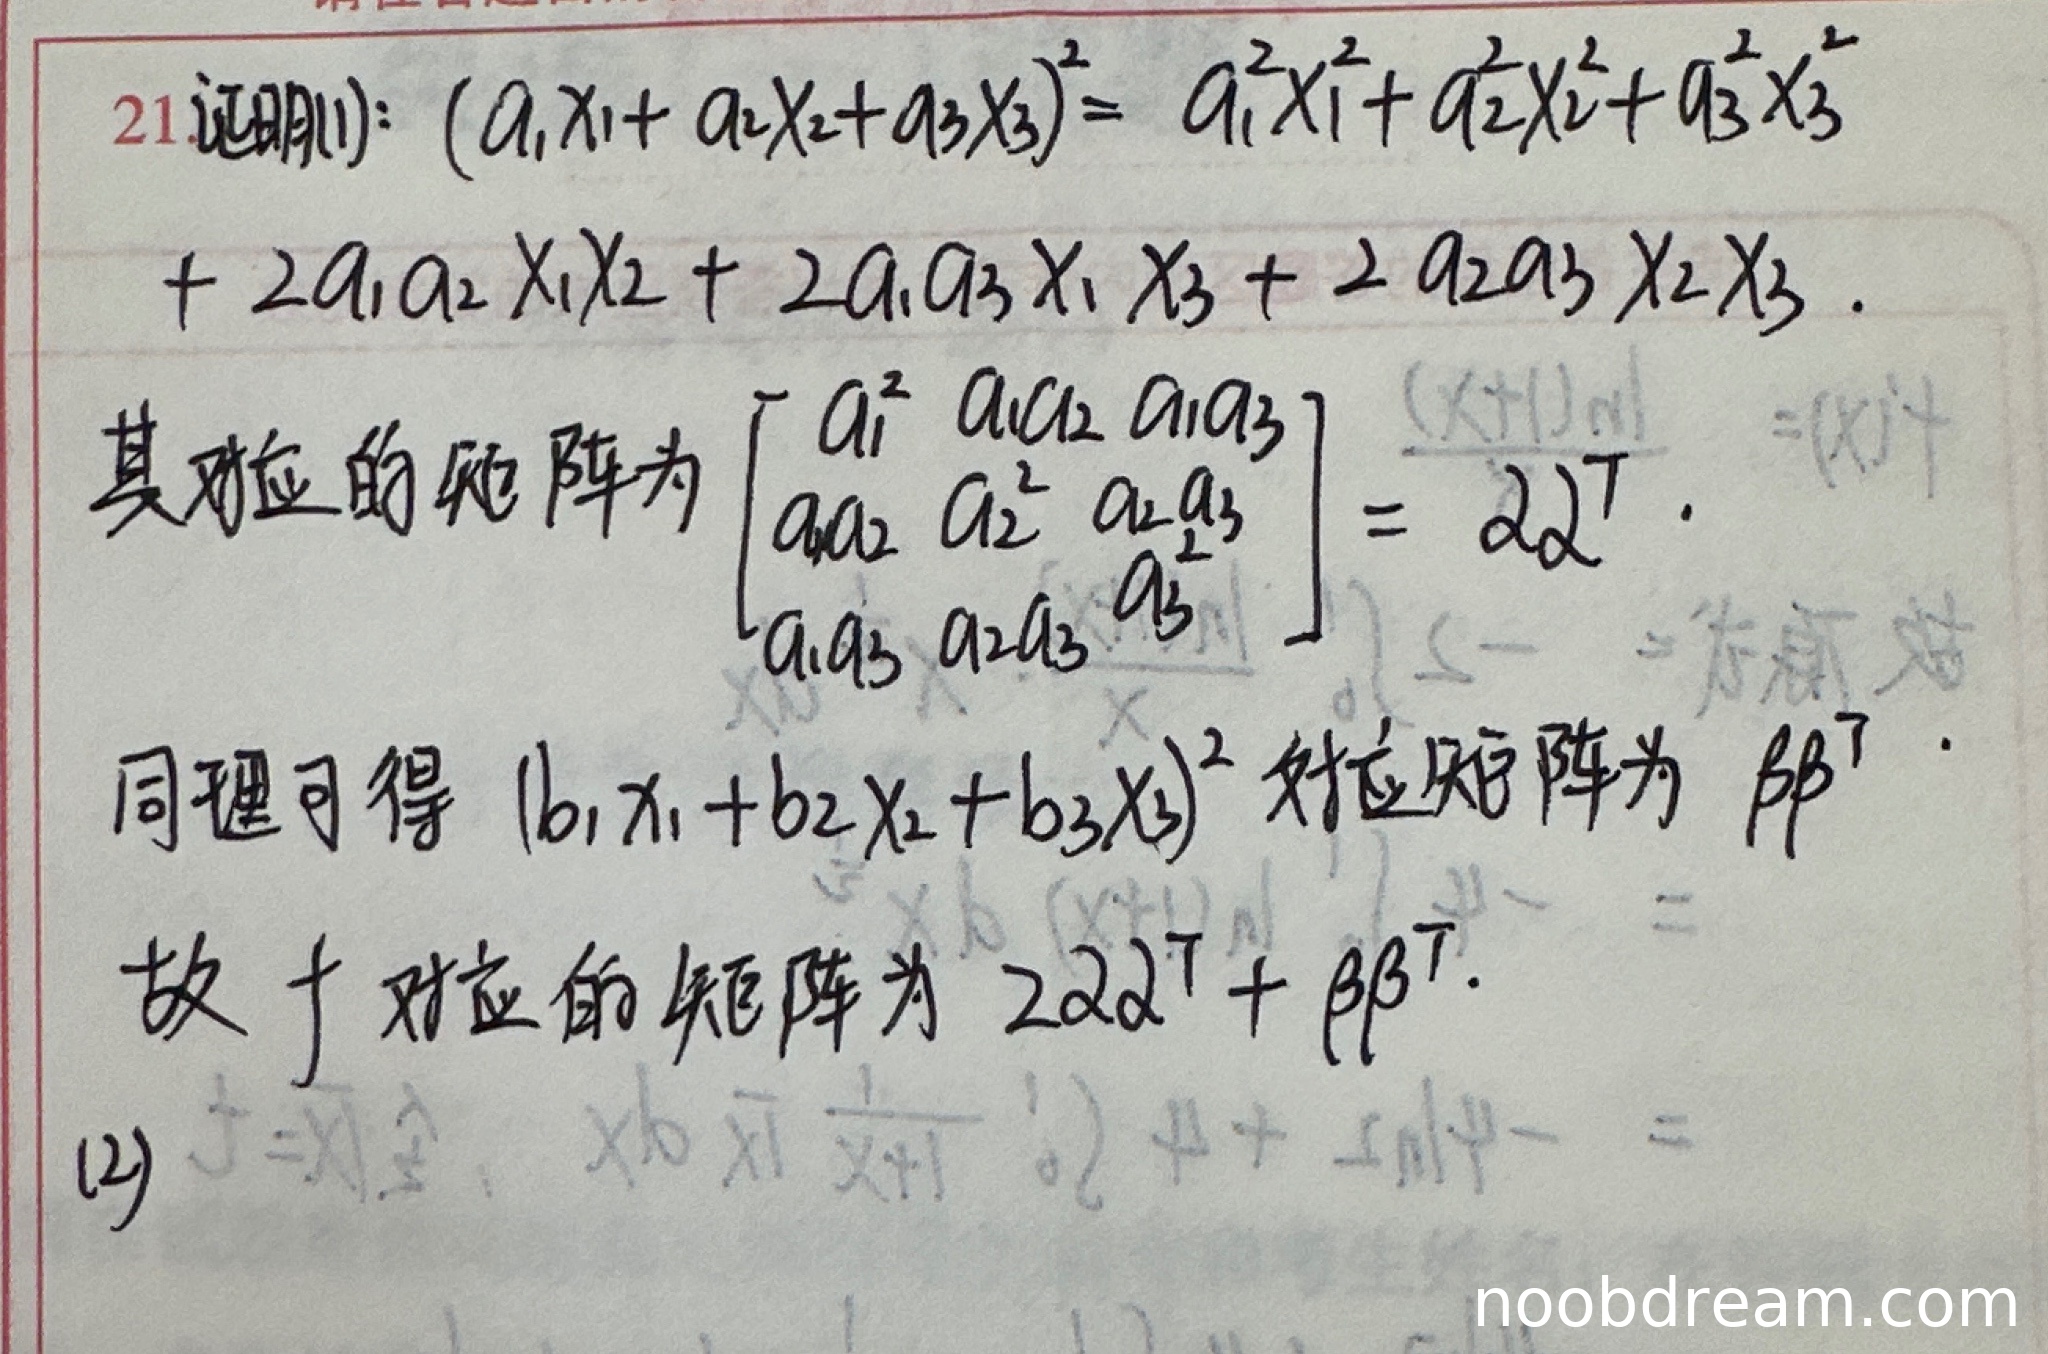 21.证明(1): (a₁x₁+ a₂x₂+a₃x₃)²= a₁²x₁²+a₂²x₂²+a₃²x₃²
+ 2a₁a₂x₁x₂+ 2a₁a₃x₁x₃+2a₂a₃x₂x₃.
其对应的矩阵为 [a₁² a₁a₂ a₁a₃
a₁a₂ a₂² a₂a₃
a₁a₃ a₂a₃ a₃²] = αα^T.
同理可得 (b₁x₁+b₂x₂+b₃x₃)² 对应矩阵为 ββ^T.
故 f 对应的矩阵为 2αα^T + ββ^T.
(2)
noobdream.com